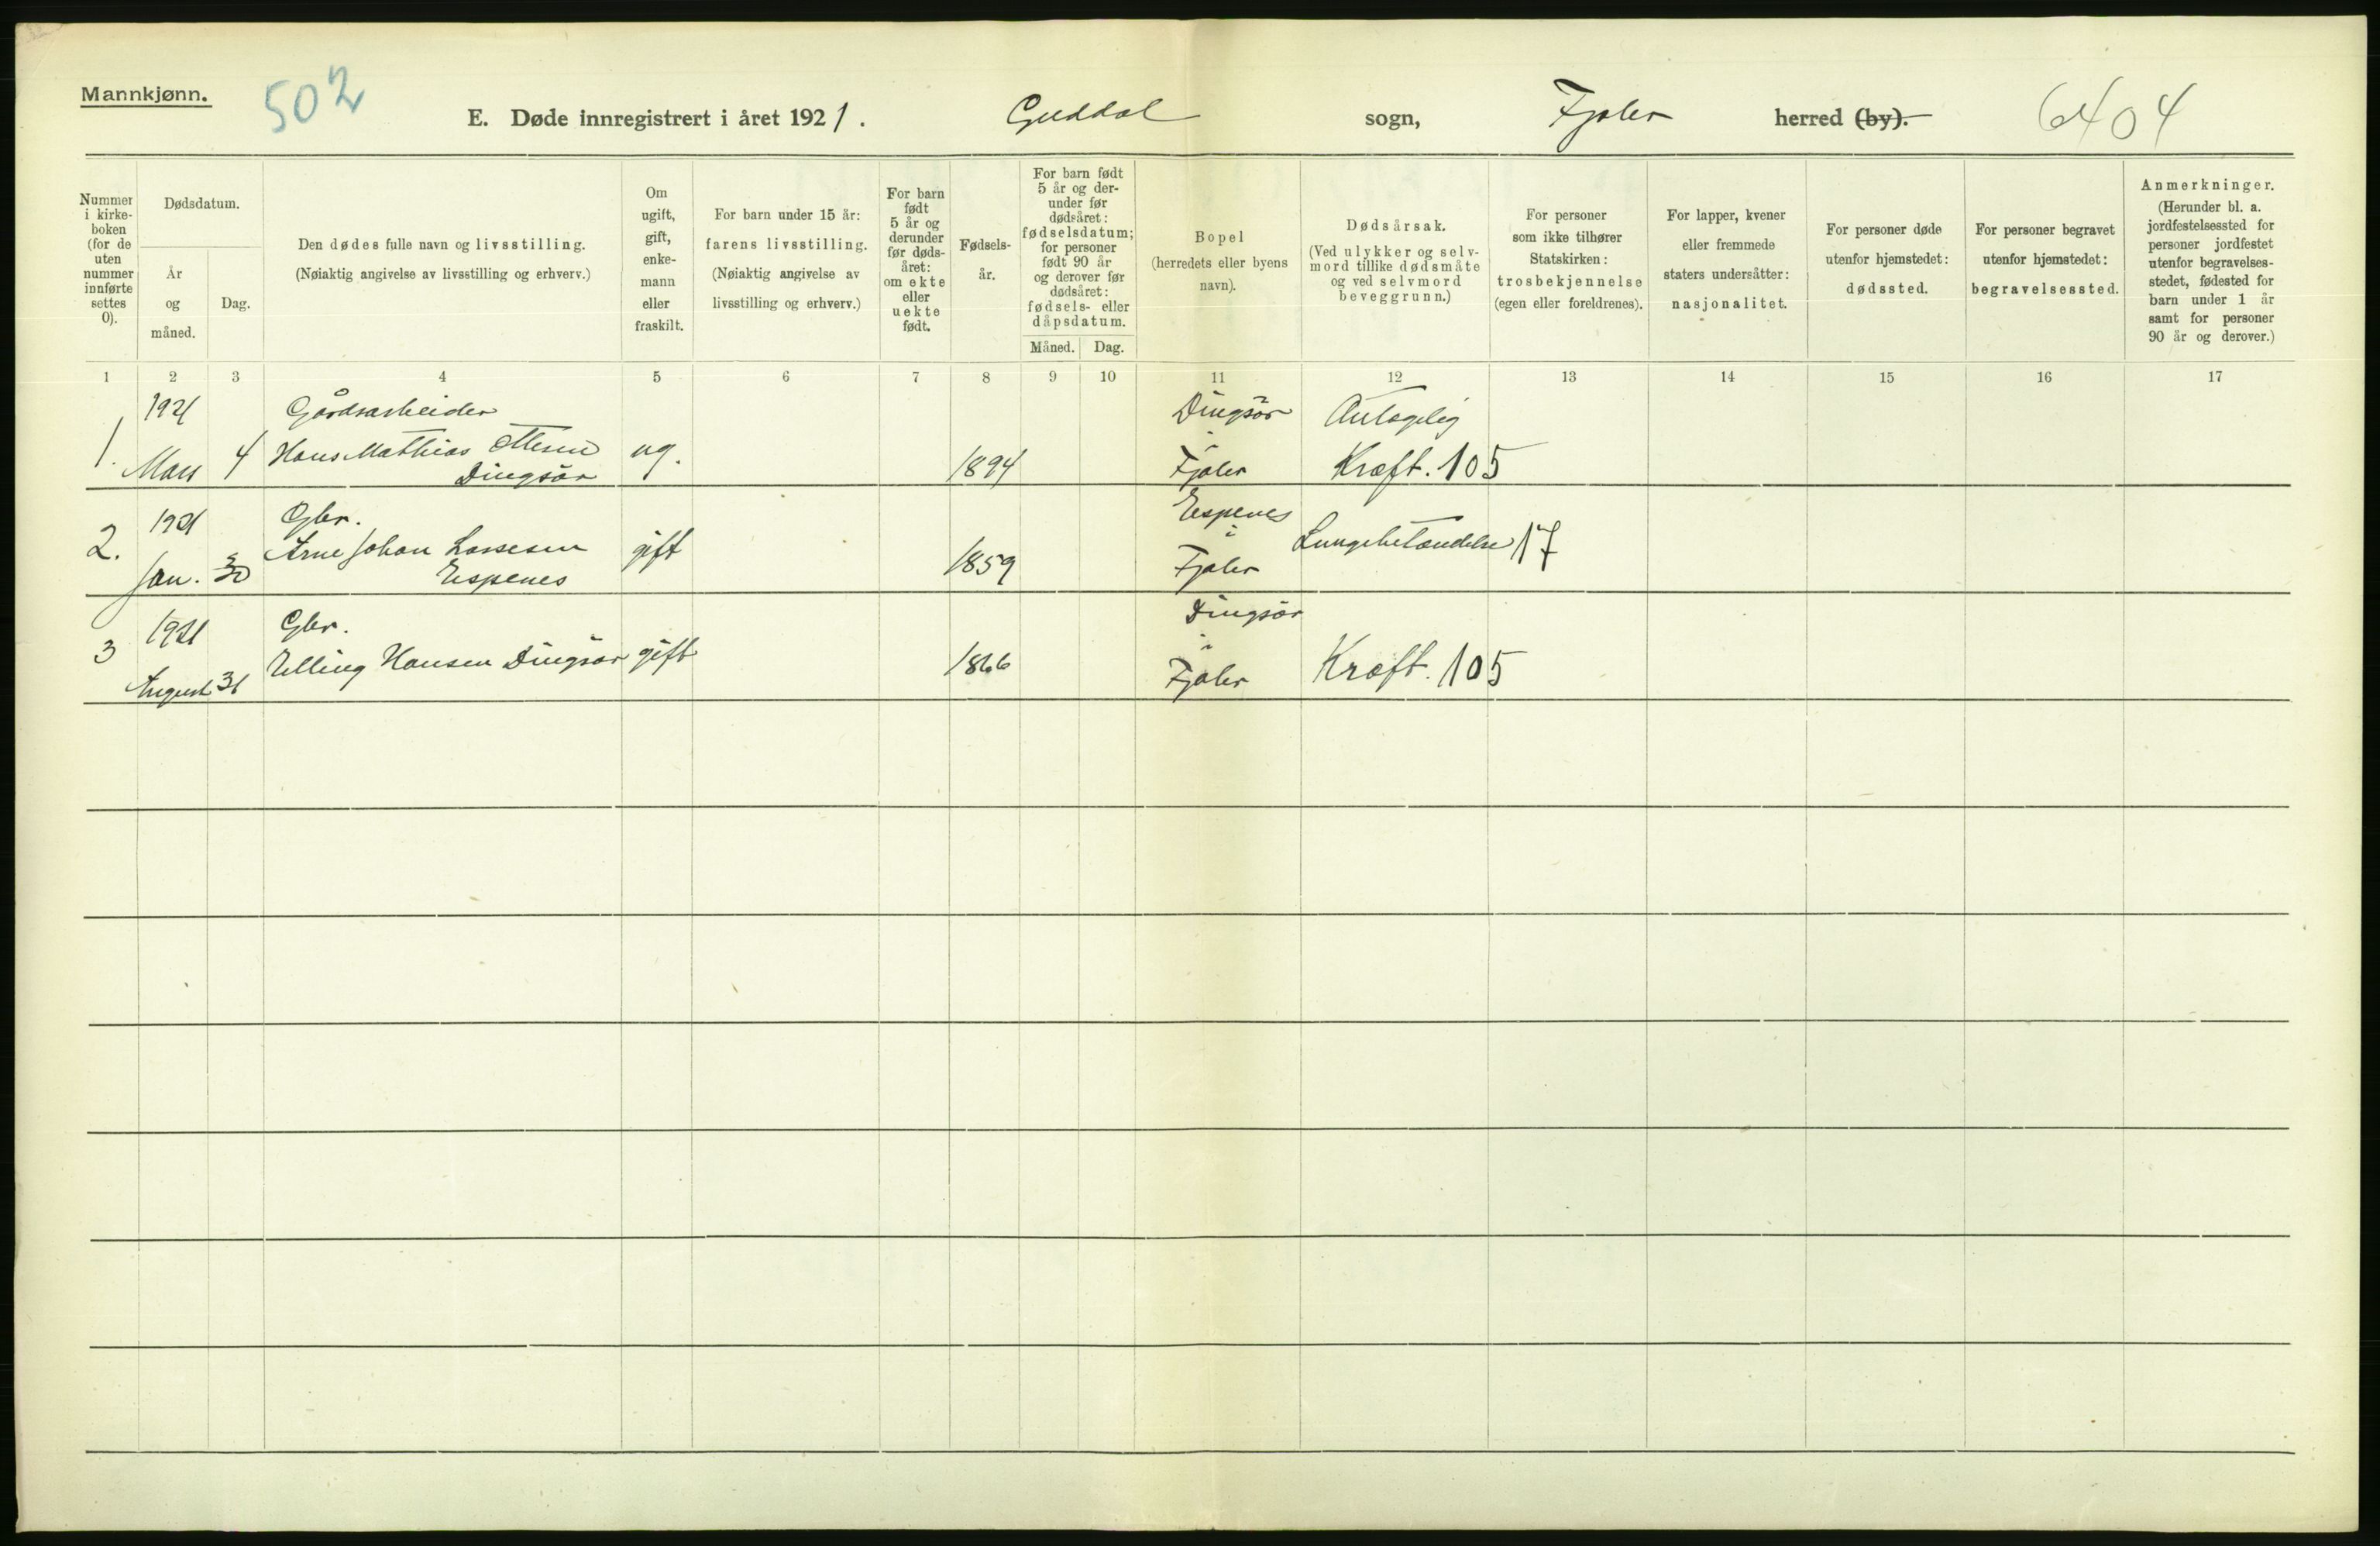 Mannkjønn.
502
E. Døde innregistrert i året 1921.
Guddal sogn,
Fjaler herred (by).
6404
Nummer i kirke-boken (for de uten nummer innførte settes 0).
Dødsdatum.
År og måned.
Dag.
Den dødes fulle navn og livsstilling.
(Nøiaktig angivelse av livsstilling og erhverv.)
Om ugift, gift, enke-mann eller fraskilt.
For barn under 15 år:
farens livsstilling.
(Nøiaktig angivelse av
livsstilling og erhverv.)
For barn født 5 år og derunder før døds-året: om ekte eller uekte født.
Fødsels-år.
For barn født 5 år og der-under før dødsåret: fødselsdatum; for personer født 90 år og derover før dødsåret: fødsels- eller dåpsdatum.
Måned. Dag.
Bopel
(herredets eller byens navn).
Dødsårsak.
(Ved ulykker og selv-mord tillike dødsmåte og ved selvmord beveggrunn.)
For personer som ikke tilhører Statskirken: trosbekjennelse (egen eller foreldrenes).
For lapper, kvener eller fremmede staters undersåtter: nasjonalitet.
For personer døde utenfor hjemstedet: dødssted.
For personer begravet utenfor hjemstedet: begravelsessted.
Anmerkninger.
(Herunder bl. a. jordfestelsessted for personer jordfestet utenfor begravelses-stedet, fødested for barn under 1 år samt for personer 90 år og derover.)
1 2 3 4 5 6 7 8 9 10 11 12 13 14 15 16 17
1921 Gårdsarbeider Dingsör Antagelig
1. Mars 4 Hans Mathias Ottesen ug. 1894 i Fjaler Kræft. 105
Dingsör
1921 Gbr. Espenes
2. Jan. 30 Arne Johan Lassesen gift 1859 i Fjaler Lungebetændelse 17
Espenes
1921 Gbr. Dingsör
3 August 31 Elling Hansen Dingsör gift 1866 i Fjaler Kræft. 105